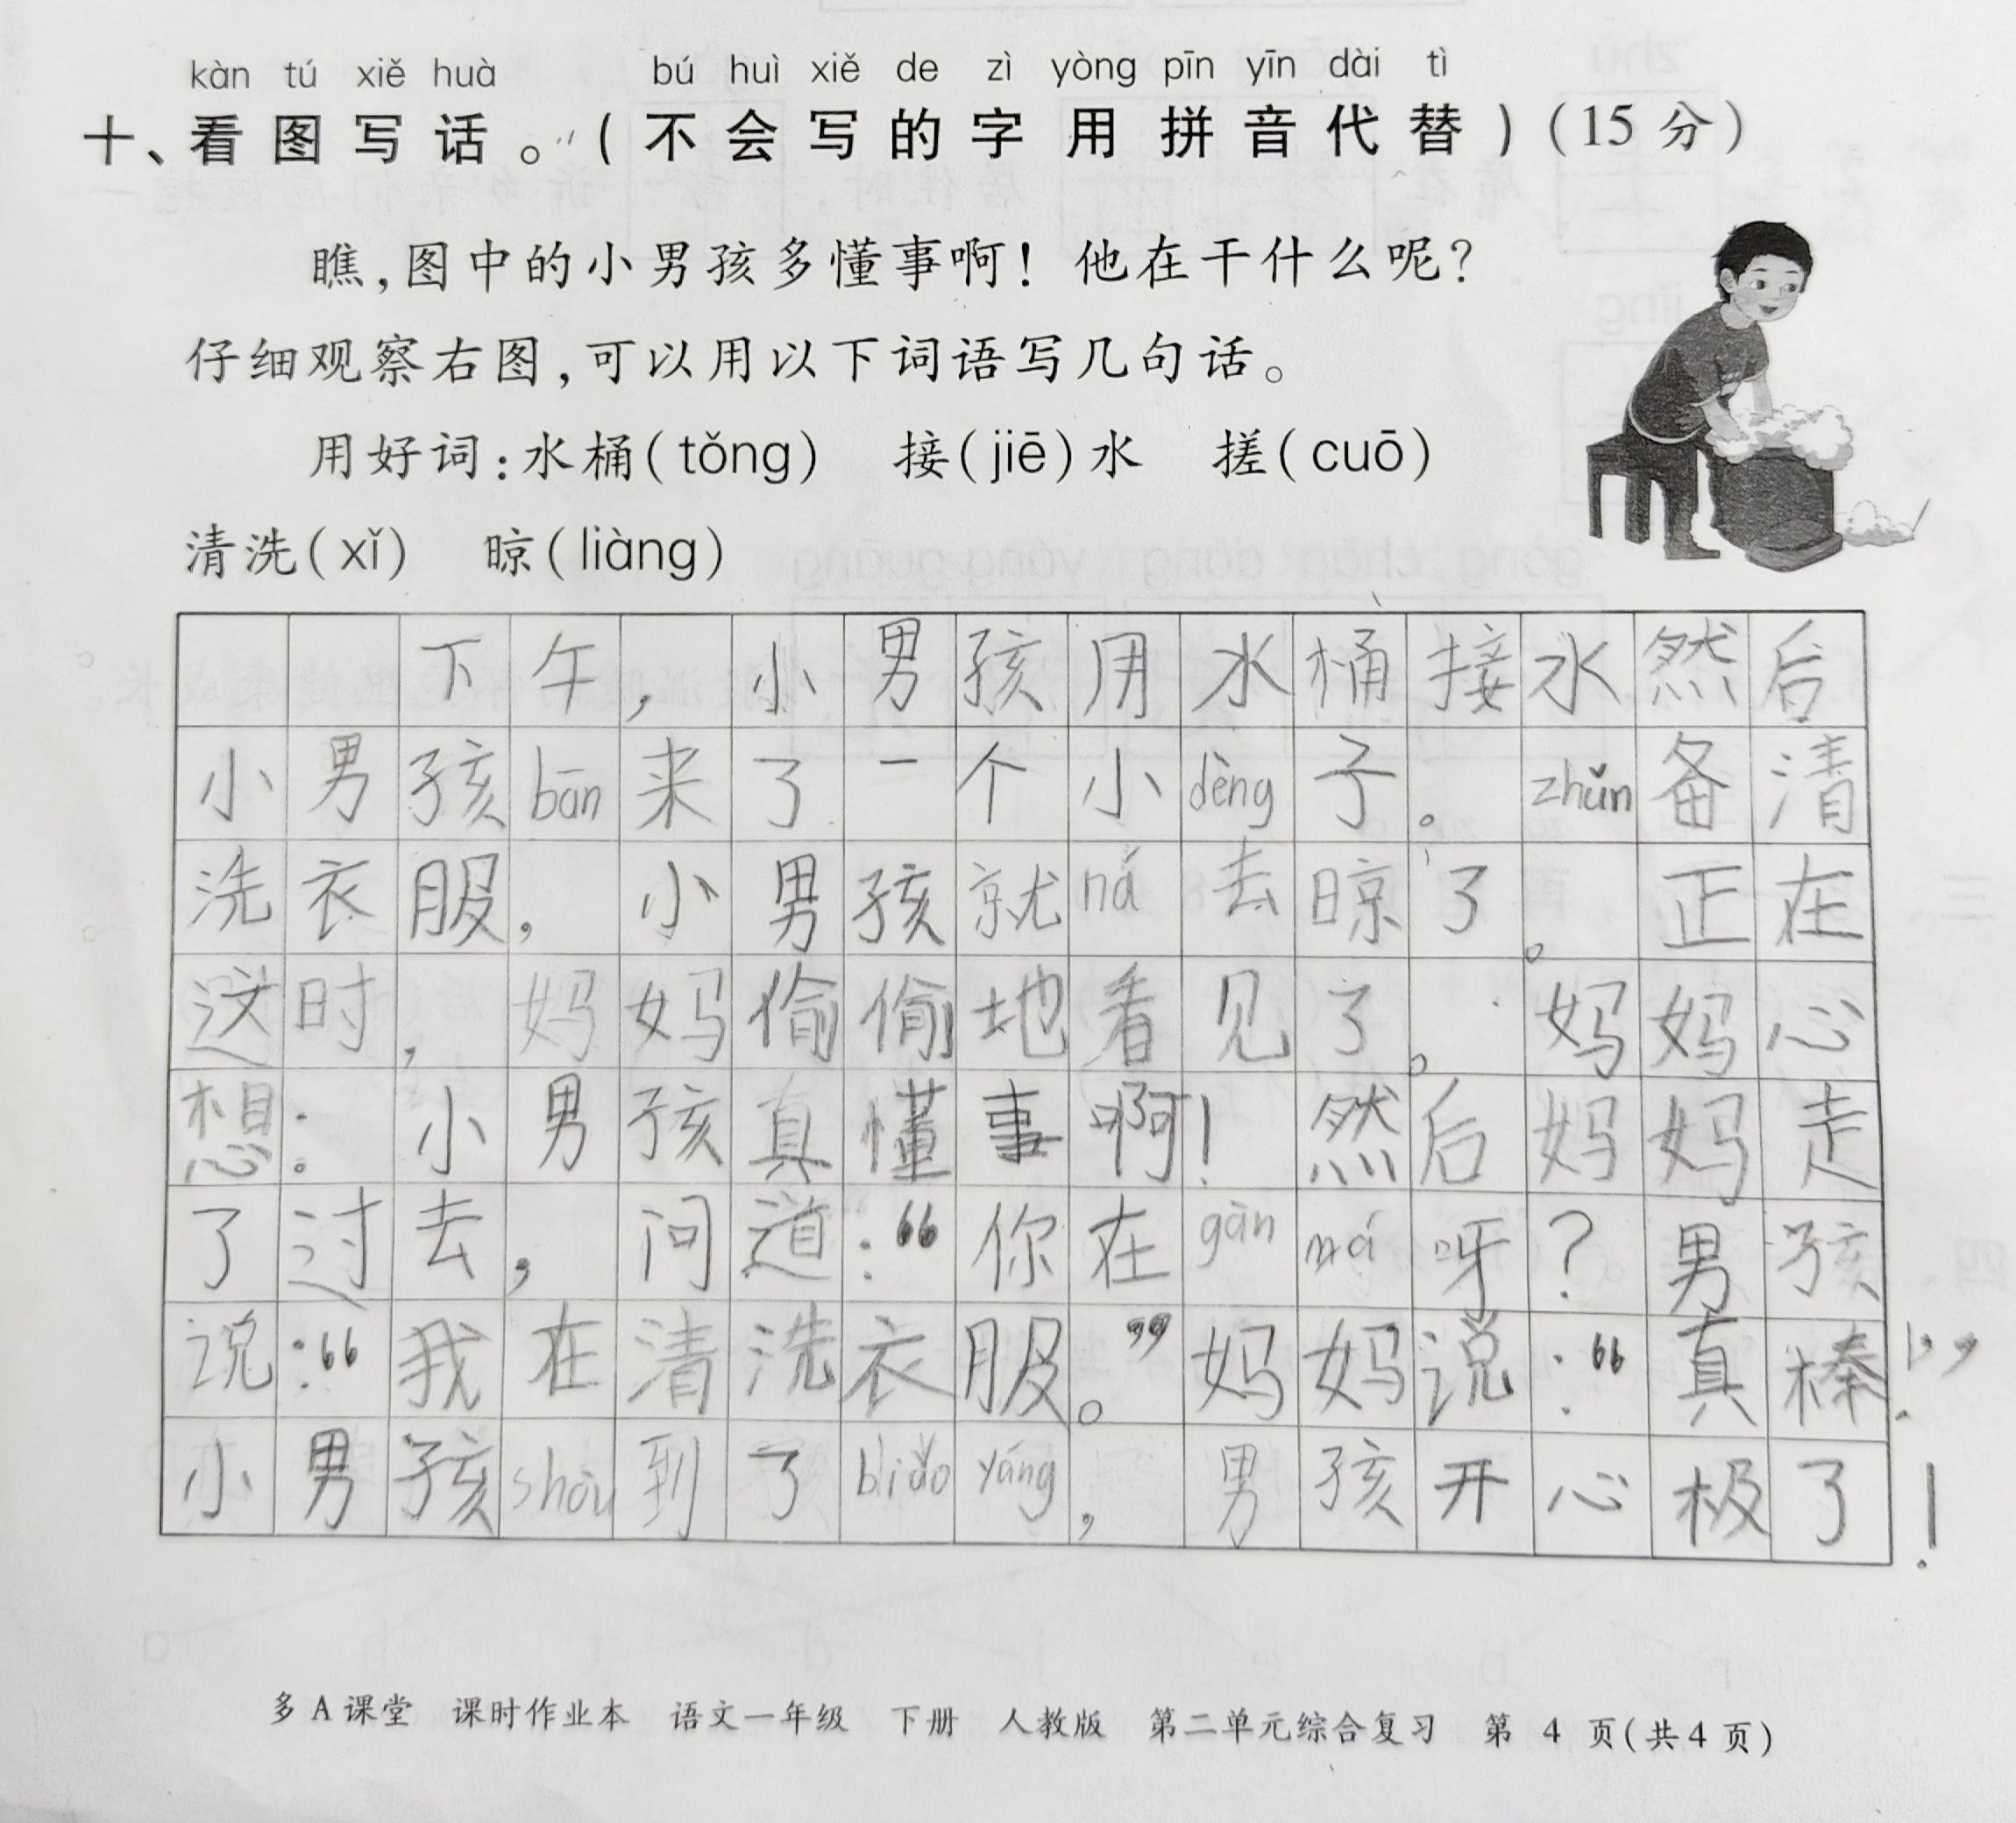 kàn tú xiě huà bú huì xiě de zì yòng pīn yīn dài tì
十、看图写话。(不会写的字用拼音代替)(15分)
瞧,图中的小男孩多懂事啊!他在干什么呢?
仔细观察右图,可以用以下词语写几句话。
用好词:水桶(tǒng) 接(jiē)水 搓(cuō)
清洗(xǐ) 晾(liàng)
下午,小男孩用水桶接水然后
小男孩bān来了一个小dèng子。zhǔn备清
洗衣服,小男孩就ná去晾了。正在
这时,妈妈偷偷地看见了。妈妈心
想:小男孩真懂事啊!然后妈妈走
了过去,问道:“你在gàn má呀?男孩
说:“我在清洗衣服。”妈妈说:“真棒!”
小男孩shòu到了biǎo yáng,男孩开心极了!
多A课堂 课时作业本 语文一年级 下册 人教版 第二单元综合复习 第 4 页(共4页)